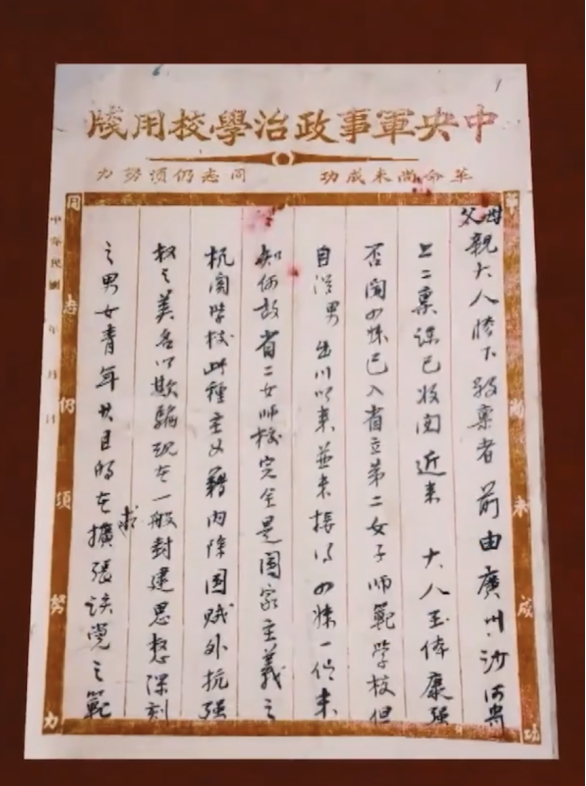 中央軍事政治學校用牋
革命尚未成功 同志仍須努力
革命尚未成功
父母親大人膝下敬稟者 前由廣州沙河寄
上二稟諒已收閱近來 大人玉体康强
否閱四妹已入省立第二女子師範學校但
自從男出川以來並未接得四妹一信未
知何故省二女師校完全是國家主義之
机関學校此種主义藉内除國賊外抗强
权之美名以欺騙現在一般封建思想深刻
之男女青年其目的在求擴張該党之範
同志仍須努力
中華民國 年 月 日